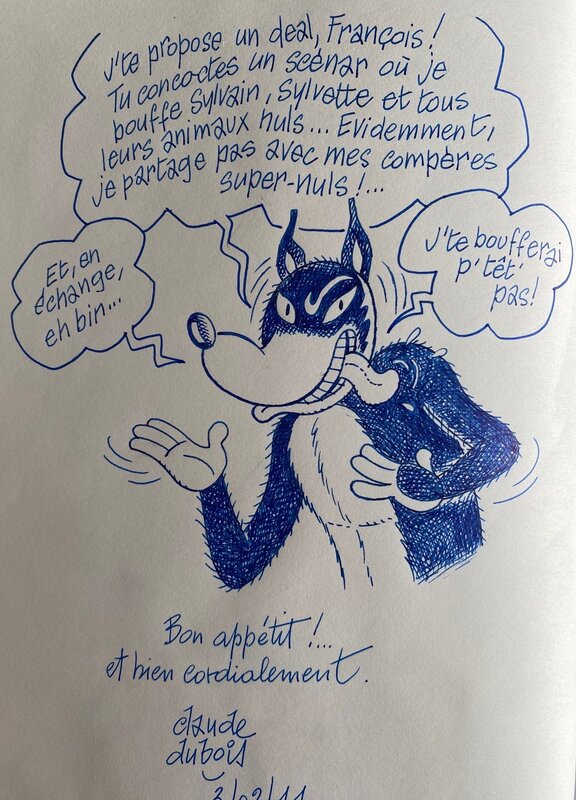 J'te propose un deal, François !
Tu concoctes un scénar où je
bouffe Sylvain, Sylvette et tous
leurs animaux nuls... Evidemment,
je partage pas avec mes compères
super-nuls !...
Et, en
échange,
eh bin...
J'te boufferai
p'têt'
pas!
Bon appétit !...
et bien cordialement.
claude
dubois
3/02/11